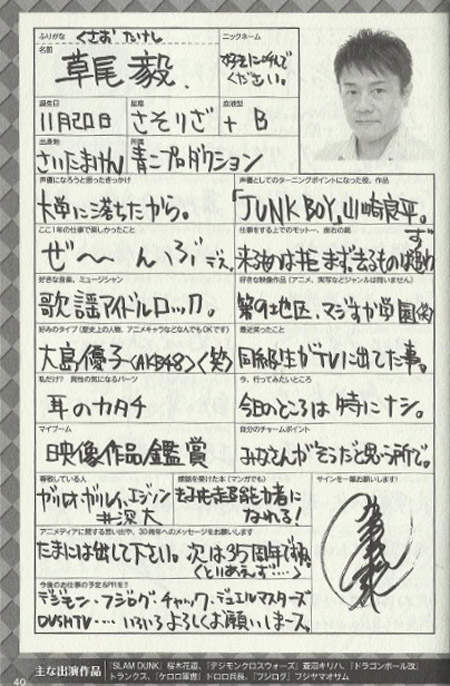 ふりがな くさお たけし
名前
草尾毅.
ニックネーム
好きに呼んで
ください。
誕生日
11月20日
星座
さそりざ
血液型
+ B
出身地
さいたまけん
所属
青二プロダクション
声優になろうと思ったきっかけ
大学に落ちたから。
声優としてのターニングポイントになった役、作品
「JUNK BOY」山崎良平。
ここ1年の仕事で楽しかったこと
ぜ〜〜んぶデス。
仕事をする上でのモットー、座右の銘
来る者は拒まず、去るものは追わず
好きな音楽、ミュージシャン
歌謡アイドルロック。
好きな映像作品(アニメ、実写などジャンルは問いません)
第9地区、マジすか学園(笑)
好みのタイプ(歴史上の人物、アニメキャラなどなんでもOKです)
大島優子(AKB48)(笑)
最近笑ったこと
同級生がTVに出てた事。
私だけ? 異性の気になるパーツ
耳のカタチ
今、行ってみたいところ
今日のところは特にナシ。
マイブーム
映像作品鑑賞
自分のチャームポイント
みなさんがそうだと思う所で。
尊敬している人
ガリレオ・ガリレイ、エジソン
井深大
感銘を受けた本(マンガでも)
超能力者に
なれる!
サインを一筆お願いします!
アニメディアに関する思い出や、30周年へのメッセージをお願いします
たまには出して下さい。次は35周年ですね。
(とりあえず…)
今後のお仕事の予定&PRを!!
デジモン・フジログ・チャック・デュエルマスターズ
DVSHTV‥‥いろいろよろしくお願いしまース。
主な出演作品
『SLAM DUNK』桜木花道、『デジモンクロスウォーズ』蒼沼キリハ、『ドラゴンボール改』
トランクス、『ケロロ軍曹』ドロロ兵長、『フジログ』フジヤマオサム
40